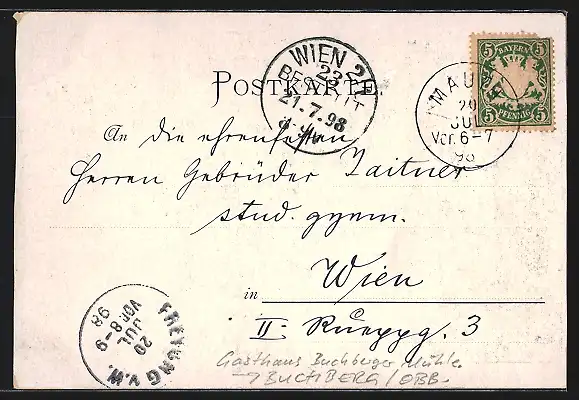 5 BAYERN 5
PFENNIG
WIEN 2
BESTELLT
21.7.98
POSTKARTE.
MAU
20
JUL
Vor. 6-7
98
An die ehrenfesten
Herren Gebrüder Zaitner
stud. gymn.
in Wien
II. Rueppg. 3
FREYUNG v.W.
20
JUL
VOR. 8-9
98
Gasthaus Buchberger Mühle
→ BUCHBERG / OBB.